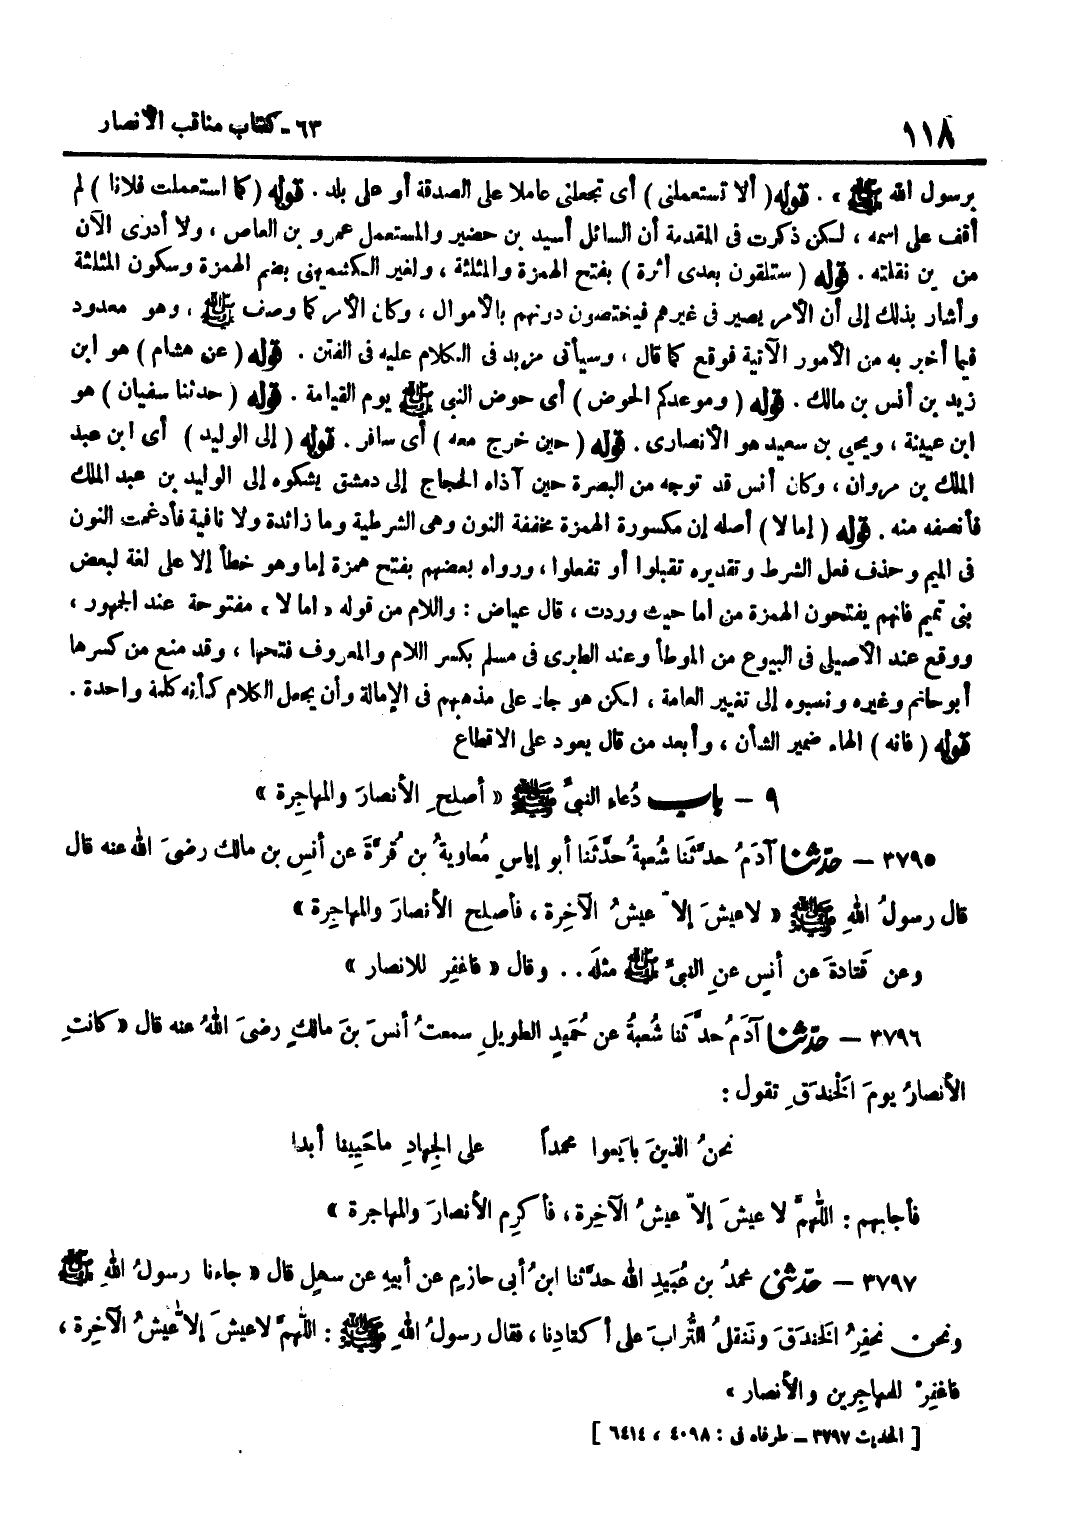 ١١٨
٦٣ - كتاب مناقب الأنصار
برسول الله ﷺ » . قوله ( ألا تستعملني ) أى تجعلنى عاملا على الصدقة أو على بلد . قوله ( كما استعملت فلانا ) لم
أقف على اسمه ، لكن ذكرت فى المقدمة أن السائل أسيد بن حضير والمستعمل عمرو بن العاص ، ولا أدرى الآن
من بن نقلته . قوله ( ستلقون بعدى أثرة ) بفتح الهمزة والمثلثة ، ولغير الكشميهنى بضم الهمزة وسكون المثلثة
وأشار بذلك إلى أن الأمر يصير فى غيرهم فيختصون دونهم بالأموال ، وكان الأمر كما وصف ﷺ ، وهو معدود
فيما أخبر به من الأمور الآتية فوقع كما قال ، وسيأتى مزيد فى الكلام عليه فى الفتن . قوله ( عن هشام ) هو ابن
زيد بن أنس بن مالك . قوله ( وموعدكم الحوض ) أى حوض النبى ﷺ يوم القيامة . قوله ( حدثنا سفيان ) هو
ابن عيينة ، ويحيى بن سعيد هو الأنصارى . قوله ( حين خرج معه ) أى سافر . قوله ( إلى الوليد ) أى ابن عبد
الملك بن مروان ، وكان أنس قد توجه من البصرة حين آذاه الحجاج إلى دمشق يشكوه إلى الوليد بن عبد الملك
فأنصفه منه . قوله ( إما لا ) أصله إن مكسورة الهمزة مخففة النون وهى الشرطية وما زائدة ولا نافية فأدغمت النون
فى الميم وحذف فعل الشرط وتقديره تقبلوا أو تفعلوا ، ورواه بعضهم بفتح همزة إما وهو خطأ إلا على لغة لبعض
بنى تميم فانهم يفتحون الهمزة من أما حيث وردت ، قال عياض : واللام من قوله « اما لا » مفتوحة عند الجمهور ،
ووقع عند الأصيلى فى البيوع من الموطأ وعند الطبرى فى مسلم بكسر اللام والمعروف فتحها ، وقد منع من كسرها
أبو حاتم وغيره ونسبوه إلى تغيير العامة ، لكن هو جار على مذهبهم فى الإمالة وأن يجعل الكلام كأنه كلمة واحدة .
قوله ( فانه ) الهاء ضمير الشأن ، وأبعد من قال يعود على الاقطاع
٩ - باب دُعاء النبىِّ ﷺ « أصلِحِ الأنصارَ والمهاجِرة »
٣٧٩٥ - حدّثنا آدَمُ حدَّثَنا شُعبةُ حدَّثَنا أبو إياسٍ مُعاويةُ بن قُرَّةَ عن أنسِ بن مالك رضىَ اللهُ عنه قال
قال رسولُ اللهِ ﷺ « لاعيشَ إلا عيشُ الآخِرة ، فأصلِح الأنصارَ والمهاجِرة »
وعن قَتادةَ عن أنسٍ عنِ النبىِّ ﷺ مثلَه . . وقال « فاغفِر للانصار »
٣٧٩٦ - حدّثنا آدَمُ حدَّثَنا شُعبةُ عن حُمَيدٍ الطويلِ سمعتُ أنسَ بنَ مالكٍ رضىَ اللهُ عنه قال « كانتِ
الأنصارُ يومَ الخَندَقِ تقول :
نحنُ الذينَ بايَعوا محمداً على الجِهادِ ماحَيِينا أبدا
فأجابهم : اللّهمَّ لا عيشَ إلاّ عيشُ الآخِرة ، فأكرِمِ الأنصارَ والمهاجرة »
٣٧٩٧ - حدّثنى محمدُ بن عُبَيدِ الله حدَّثنا ابنُ أبى حازمٍ عن أبيهِ عن سهلٍ قال « جاءنا رسولُ اللهِ ﷺ
ونحن نحفِرُ الخندَقَ ونَنقلُ التُّرابَ على أكتادِنا ، فقال رسولُ اللهِ ﷺ : اللّهمَّ لاعيشَ إلاّ عيشُ الآخِرة ،
فاغفِرْ للمهاجِرين والأنصار »
[ الحديث ٣٧٩٧ - طرفاه فى : ٤٠٩٨ ، ٦٤١٤ ]